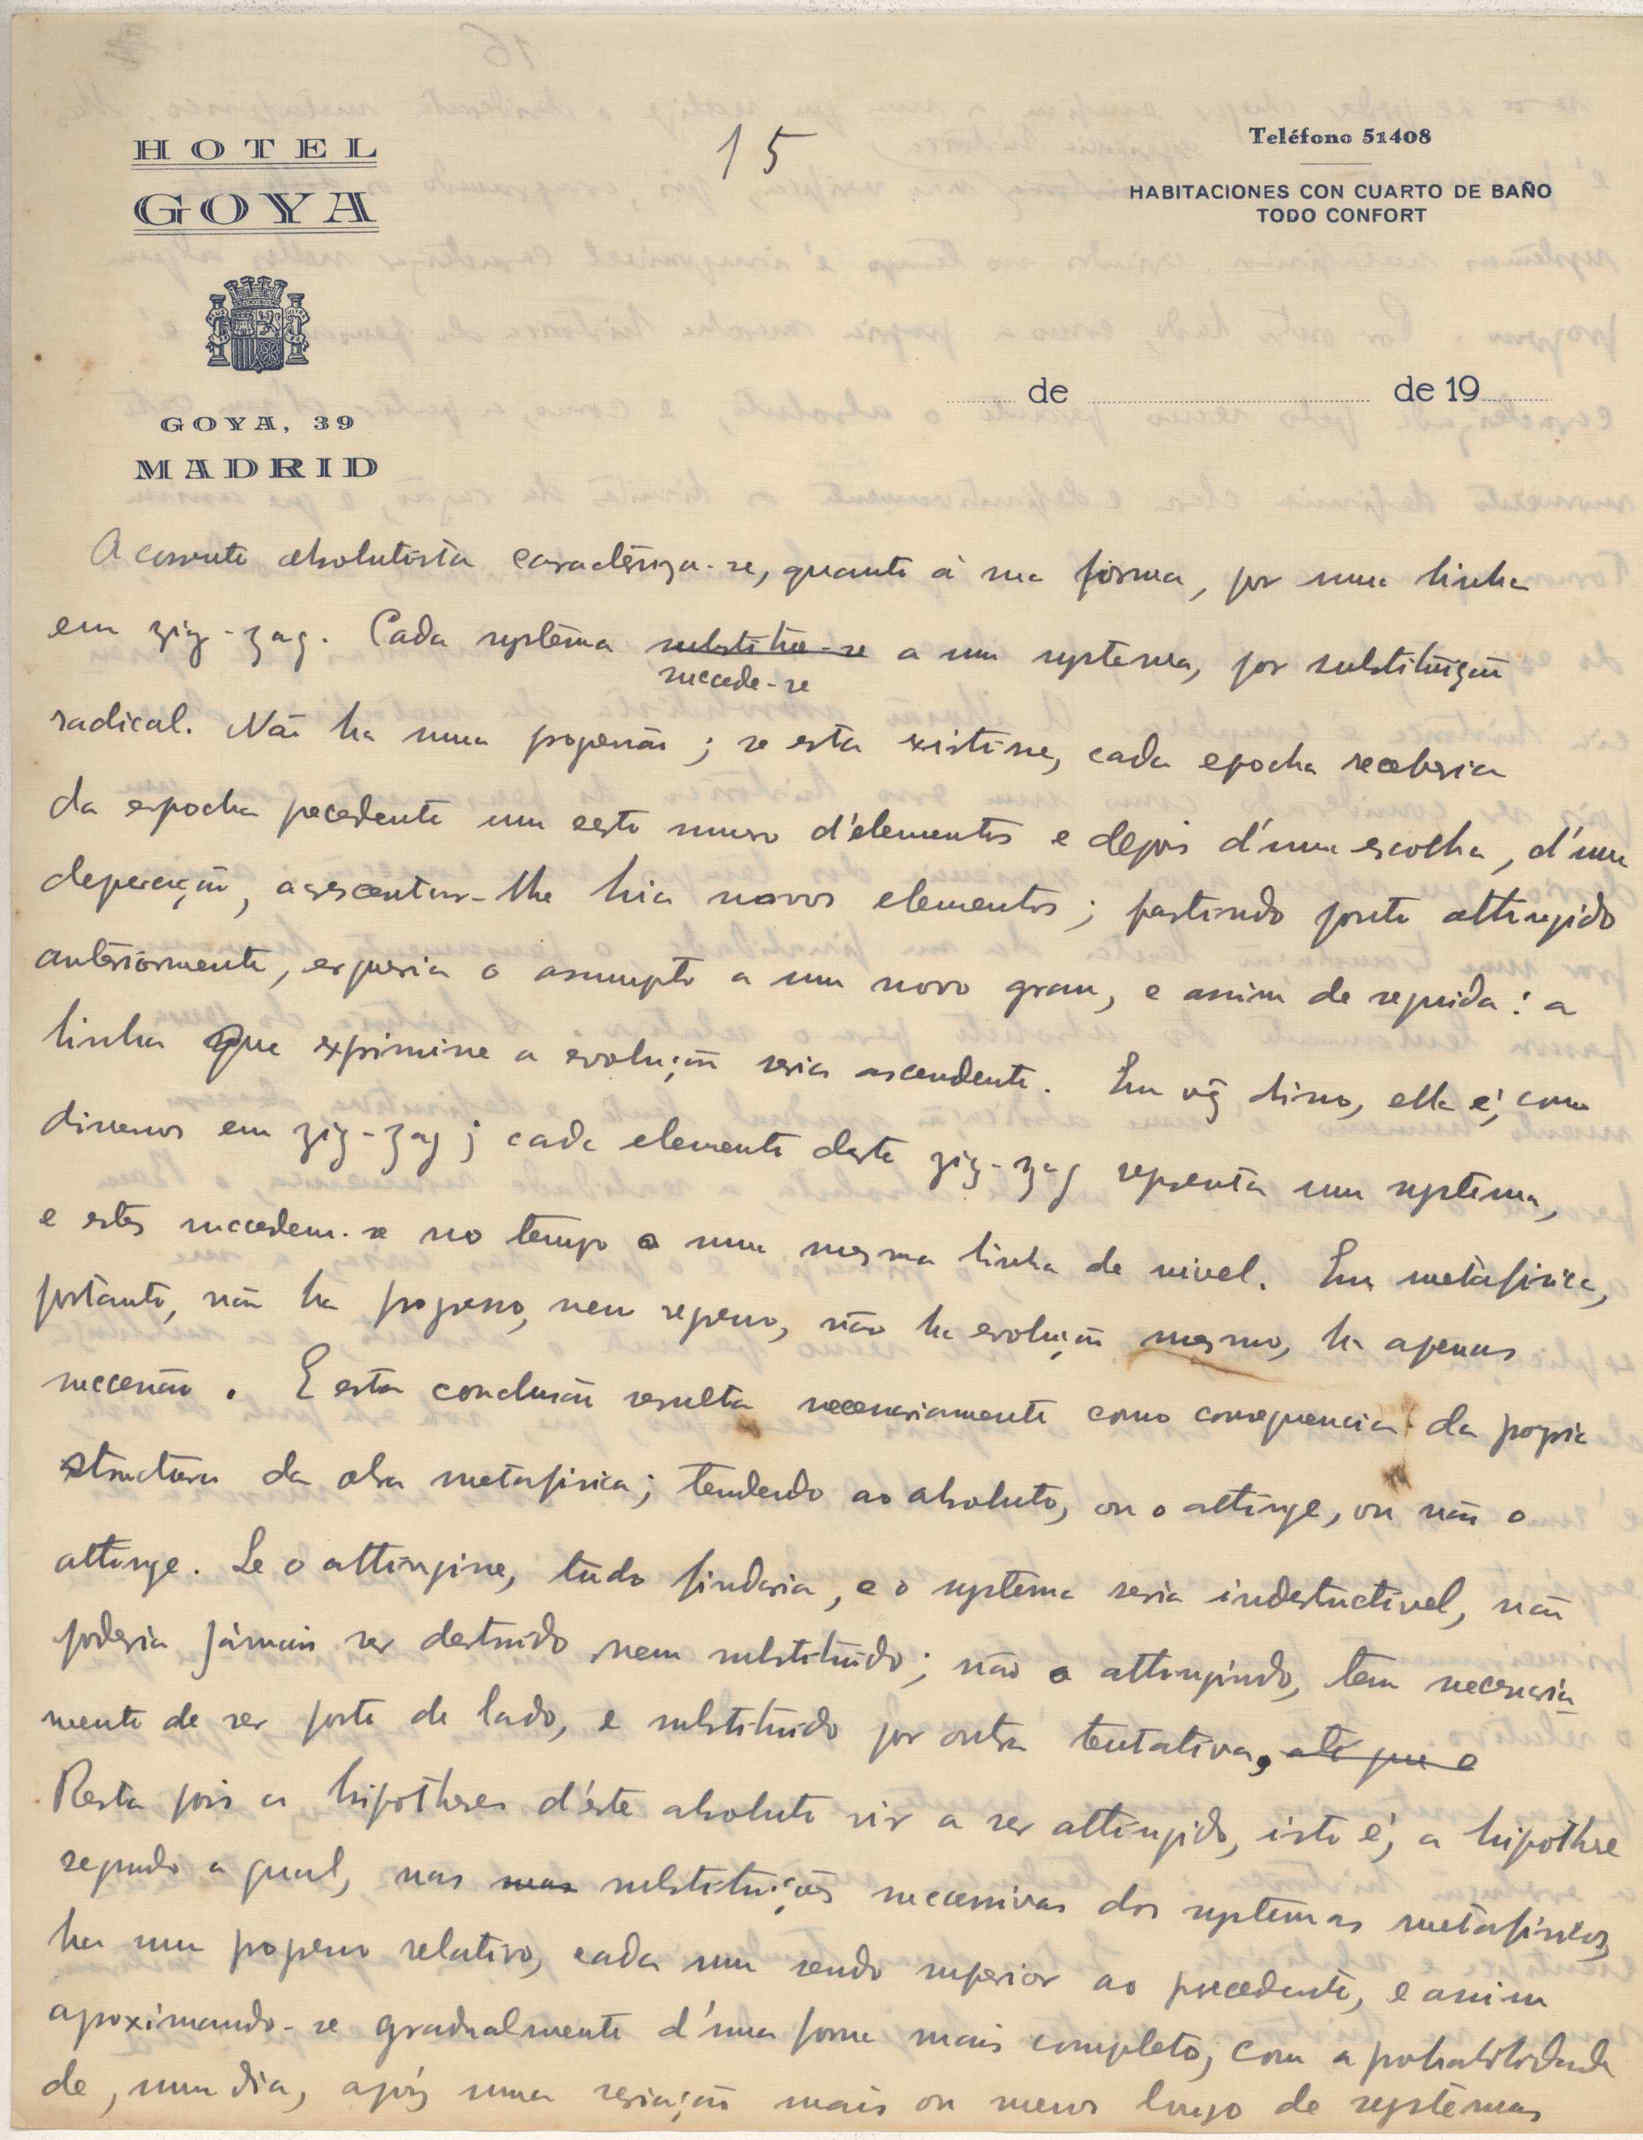 15
HOTEL
GOYA
GOYA, 39
MADRID
Teléfono 51408
HABITACIONES CON CUARTO DE BAÑO
TODO CONFORT
de de 19
A corrente absolutista caracteriza-se, quanto á sua fórma, por uma linha
em zig-zag. Cada systema substitue-se a um systema, por substituição
succede-se
radical. Não ha uma progressão; se esta existisse, cada epocha receberia
da espocha precedente um certo numero d'elementos e depois d'uma escolha, d'uma
depuração, acrescentar-lhe hia novos elementos; partindo ponto attingido
anteriormente, ergueria o assumpto a um novo grau, e assim de seguida: a
linha que exprimisse a evolução seria ascendente. Em vez disso, ella é, como
dissemos em zig-zag; cada elemento deste zig-zag representa um systema,
e estes succedem-se no tempo a uma mesma linha de nivel. Em metafisica,
portanto, não ha progresso, nem regresso, não ha evolução mesmo, ha apenas
successão. E esta conclusão resulta necessariamente como consequencia da propria
structura da obra metafisica; tendendo ao absoluto, ou o attinge, ou não o
attinge. Se o attingisse, tudo findaria, e o systema seria indestructivel, não
poderia jámais ser destruido nem substituido; não o attingindo, tem necessaria-
mente de ser posto de lado, e substituido por outra tentativa, até que e
Resta pois a hipotheses d'este absoluto vir a ser attingido, isto é, a hipothese
segundo a qual, nas suas substituições successivas dos systemas metafisicos,
ha um progresso relativo, cada um sendo superior ao precedente, e assim
aproximando-se gradualmente d'uma forma mais completo, com a probabilidade
de, um dia, após uma seriação mais ou menos longo de systemas